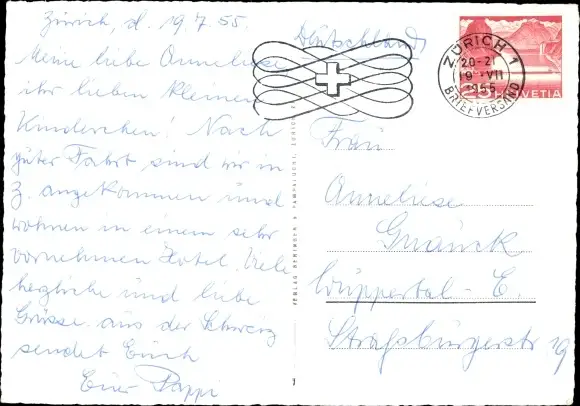 Zürich, d. 19.7.55.
Meine liebe Anneliese
ihr lieben kleinen
Kinderchen! Nach
guter Fahrt sind wir in
Z. angekommen und
wohnen in einem sehr
vornehmen Hotel. Viele
herzliche und liebe
Grüsse aus der Schweiz
sendet Euch
Euer Pappi
Deutschland
ZÜRICH 1
20-21
19 VII
1955
BRIEFVERSAND
25 HELVETIA
VERLAG BERINGER & PAMPALUCHI, ZÜRICH
Frau
Anneliese
Wuppertal - E.
Straßburgerstr 19